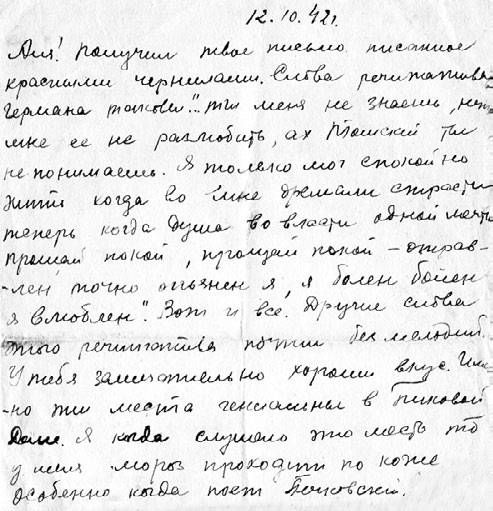 12.10.42г.
Аля! Получил твое письмо писанное
красными чернилами. Слова речитатива
Германа таковы: "Ты меня не знаешь, нет
мне ее не разлюбить, ах Томский ты
не понимаешь. Я только мог спокойно
жить когда во мне дремали страсти
теперь когда душа во власти одной мечты
прощай покой, прощай покой – отрав-
-лен, точно опьянен я, я болен болен
я влюблен". Вот и все. Другие слова
этого речитатива почти без мелодий.
У тебя замечательно хороший вкус. Имен-
-но эти места гениальны в Пиковой
Даме. Я когда слушаю это место то
у меня мороз проходит по коже
особенно когда поет Печковский.